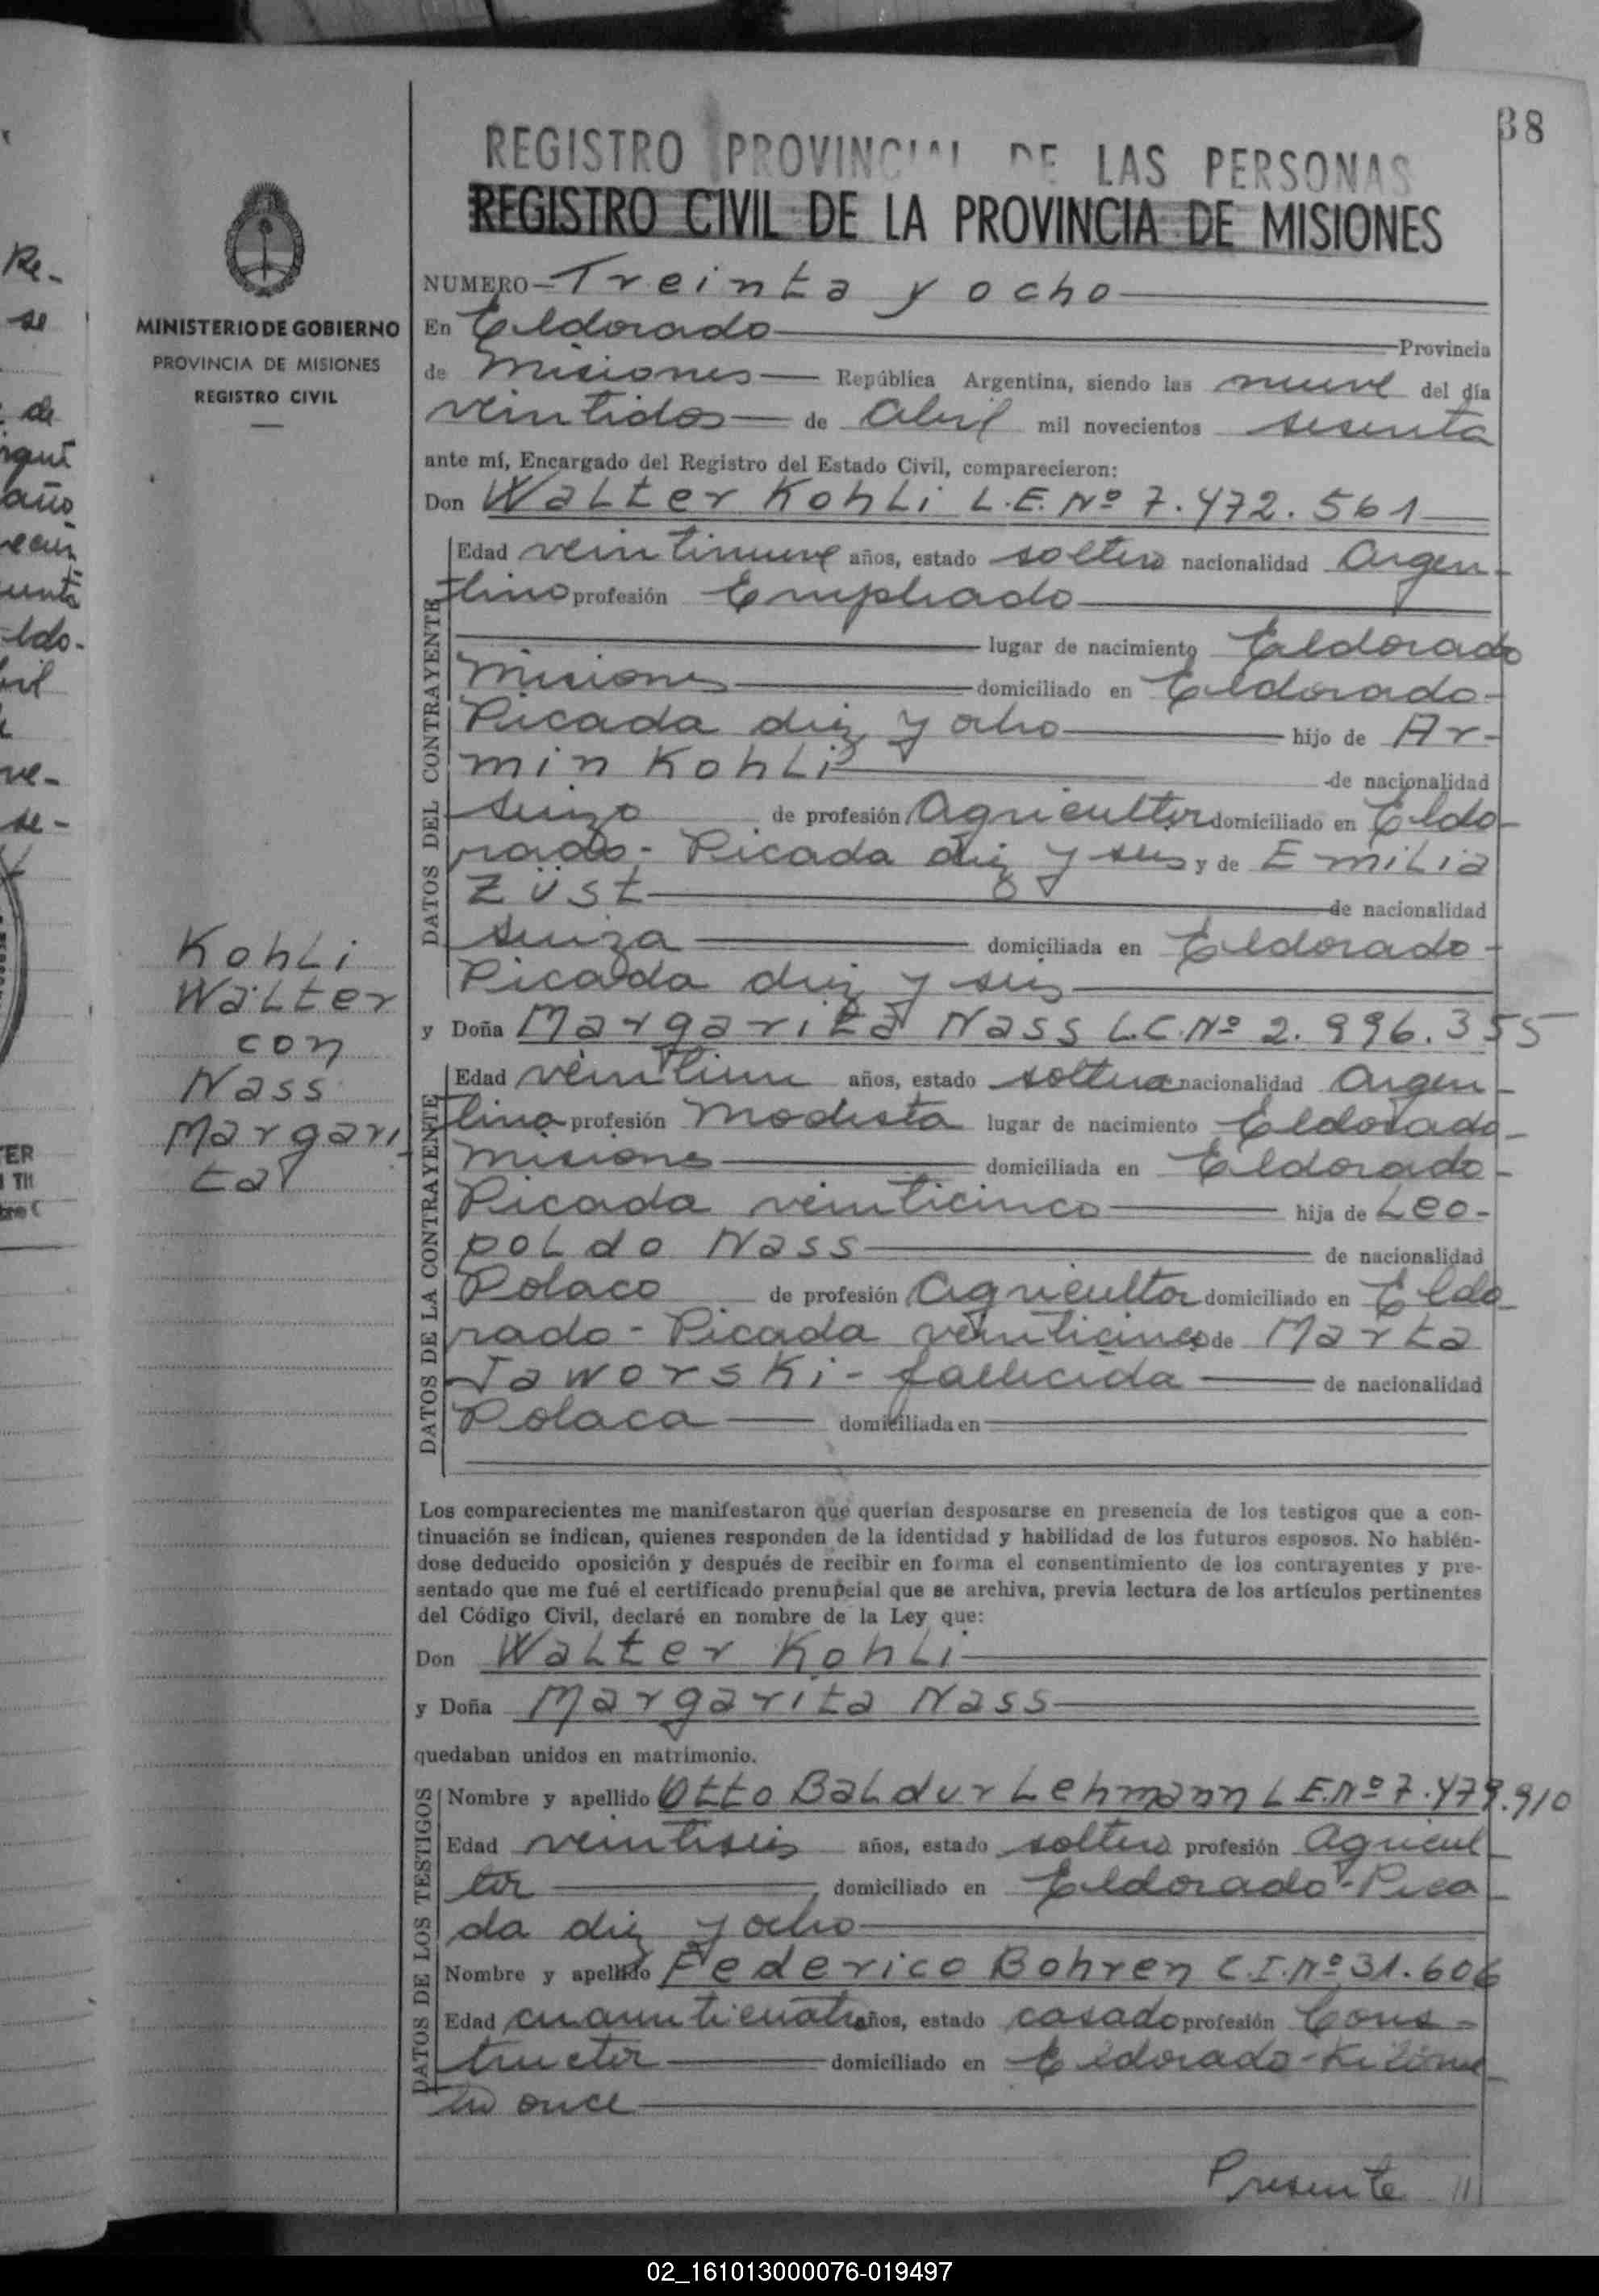 38
REGISTRO PROVINCIAL DE LAS PERSONAS
REGISTRO CIVIL DE LA PROVINCIA DE MISIONES
MINISTERIO DE GOBIERNO
PROVINCIA DE MISIONES
REGISTRO CIVIL
NUMERO Treinta y ocho
En Eldorado Provincia
de Misiones República Argentina, siendo las nueve del día
veintidos de Abril mil novecientos sesenta
ante mí, Encargado del Registro del Estado Civil, comparecieron:
Don Walter Kohli L.E. Nº 7.472.561
DATOS DEL CONTRAYENTE
Edad veintinueve años, estado soltero nacionalidad Argen-
tino profesión Empleado
lugar de nacimiento Eldorado
Misiones domiciliado en Eldorado-
Picada diez y ocho hijo de Ar-
min Kohli de nacionalidad
suizo de profesión Agricultor domiciliado en Eldo-
rado- Picada diez y seis y de Emilia
Züst de nacionalidad
suiza domiciliada en Eldorado-
Picada diez y seis
Kohli
Walter
con
Nass
Margari-
ta
y Doña Margarita Nass L.C. Nº 2.996.355
DATOS DE LA CONTRAYENTE
Edad veintiun años, estado soltera nacionalidad Argen-
tina profesión Modista lugar de nacimiento Eldorado-
Misiones domiciliada en Eldorado-
Picada veinticinco hija de Leo-
poldo Nass de nacionalidad
Polaco de profesión Agricultor domiciliado en Eldo-
rado- Picada veinticinco y de Marta
Jaworski- fallecida de nacionalidad
Polaca domiciliada en
Los comparecientes me manifestaron que querían desposarse en presencia de los testigos que a con-
tinuación se indican, quienes responden de la identidad y habilidad de los futuros esposos. No habién-
dose deducido oposición y después de recibir en forma el consentimiento de los contrayentes y pre-
sentado que me fué el certificado prenupcial que se archiva, previa lectura de los artículos pertinentes
del Código Civil, declaré en nombre de la Ley que:
Don Walter Kohli
y Doña Margarita Nass
quedaban unidos en matrimonio.
DATOS DE LOS TESTIGOS
Nombre y apellido Otto Baldur Lehmann L.E. Nº 7.479.910
Edad veintiseis años, estado soltero profesión Agricul-
tor domiciliado en Eldorado-Pica-
da diez y ocho
Nombre y apellido Federico Bohren C.I. Nº 31.606
Edad años, estado casado profesión Cons-
tructor domiciliado en Eldorado-Kilome-
tro once
Presente
02_161013000076-019497